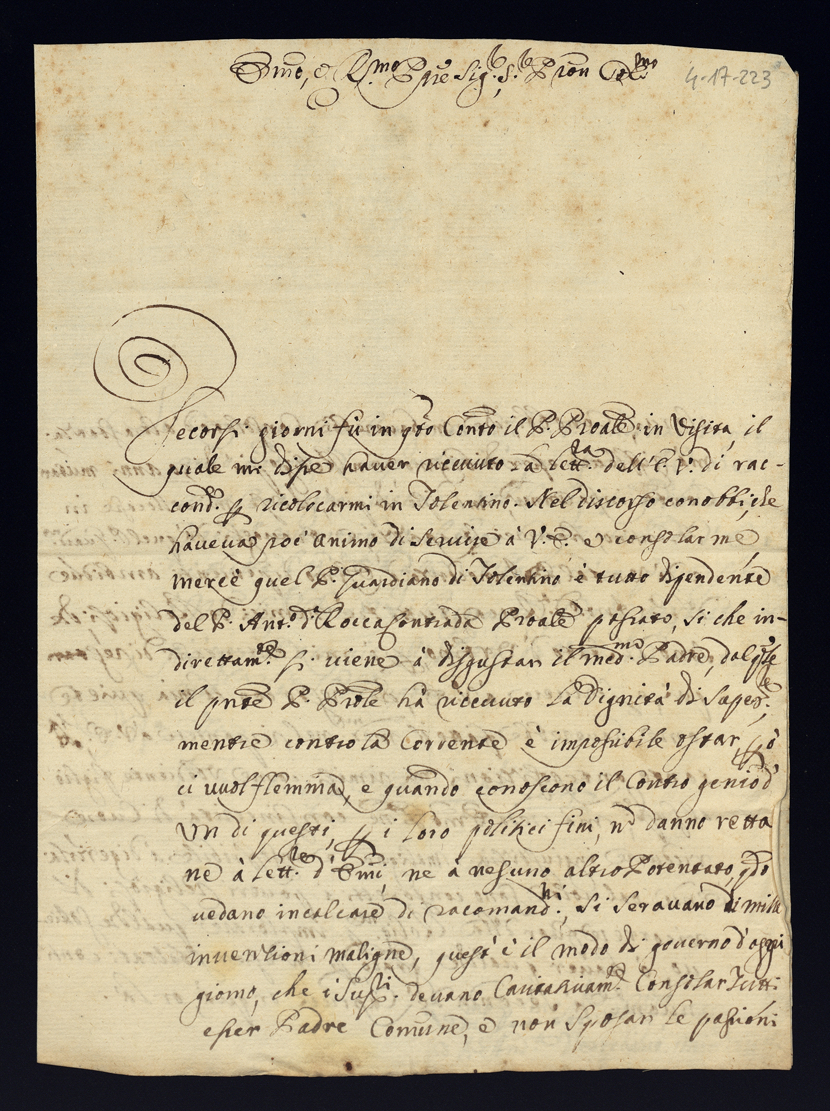 Emo, e R.mo Pñe Sig.r, S.r Pron Col.mo
4-17-223
Decorsi giorni fù in qto Conto il P. Proale in Visita, il
quale mi disse haver riceuuto la lett.ra dell'E. V. di rac-
cond. p ricolocarmi in Tolentino. Nel discorso conobbi, che
haveva poc' animo di servire à V. E. e consolar me
mercè quel P. Guardiano di Tolentino è tutto dipendente
del P. Ant.o d. Roccacontrada Proale passato, si che in-
direttam.te si viene à disgustar il med.mo Padre, dal qle
il pnte P. Prole hà riceuuto la Dignità di Super.re,
mentre contro la Corrente è impossibile ostar, p ò
ci vuol flemma, e quando conoscono il Contro genio d
Un di questi, p i loro politici fini, n danno retta
ne à lett.re d' Emi, ne à nesuno altro Potentato, qdo
vedano incalzare di racomand.ni, si seravano di mille
invenzioni maligne, quest' è il modo di governo d'oggi
giorno, che i Sup.ri devano Caritativam.te Consolar Tutti
esser Padre Comune, e non sposar le passioni